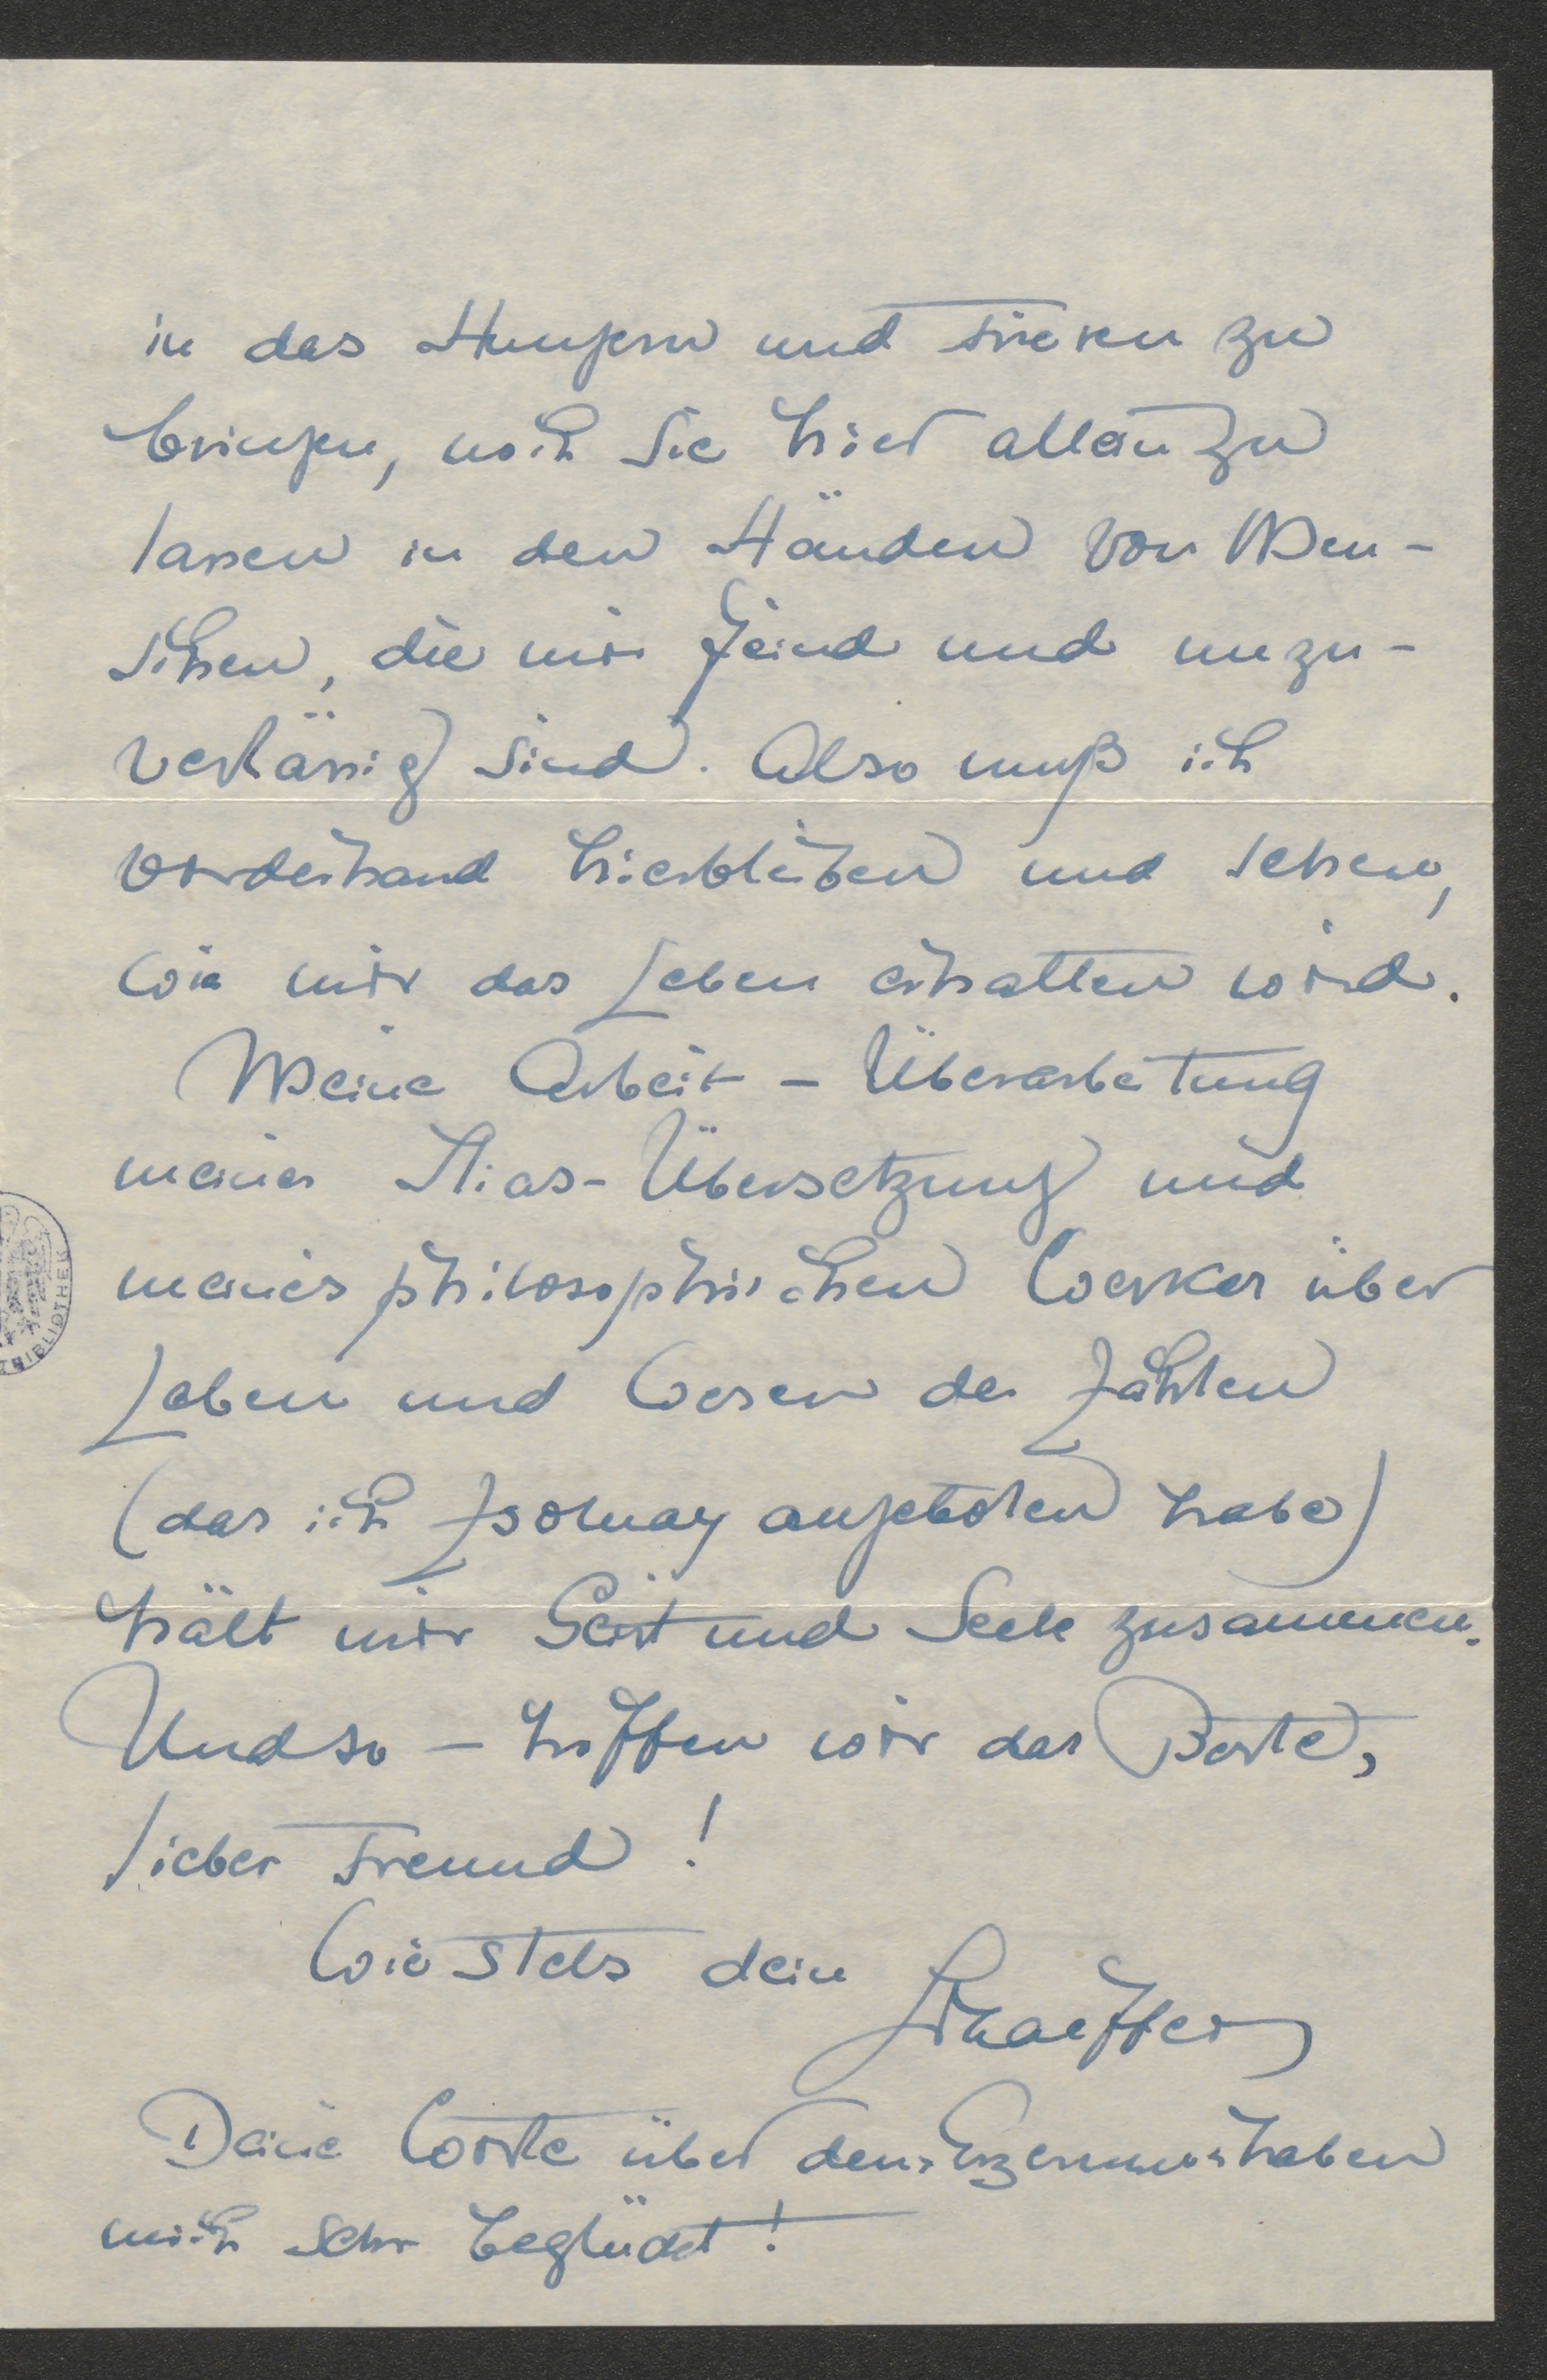 in das Hungern und Frieren zu
bringen, noch sie hier allein zu
lassen in den Händen von Men-
schen, die mir feind und unzu-
verlässig sind. Also muß ich
vorderhand hierbleiben und sehen,
wie mir das Leben erhalten wird.
Meine Arbeit – Überarbeitung
meiner Ilias-Übersetzung und
meines philosophischen Werkes über
Leben und Wesen der Zahlen
(das ich Zsolnay angeboten habe)
hält mir Geist und Seele zusammen.
Und so – hoffen wir das Beste,
lieber Freund!
Wie stets dein
Schaeffer
Deine Worte über den haben
mich sehr beglückt!
THEK
BIBLIOTHEK